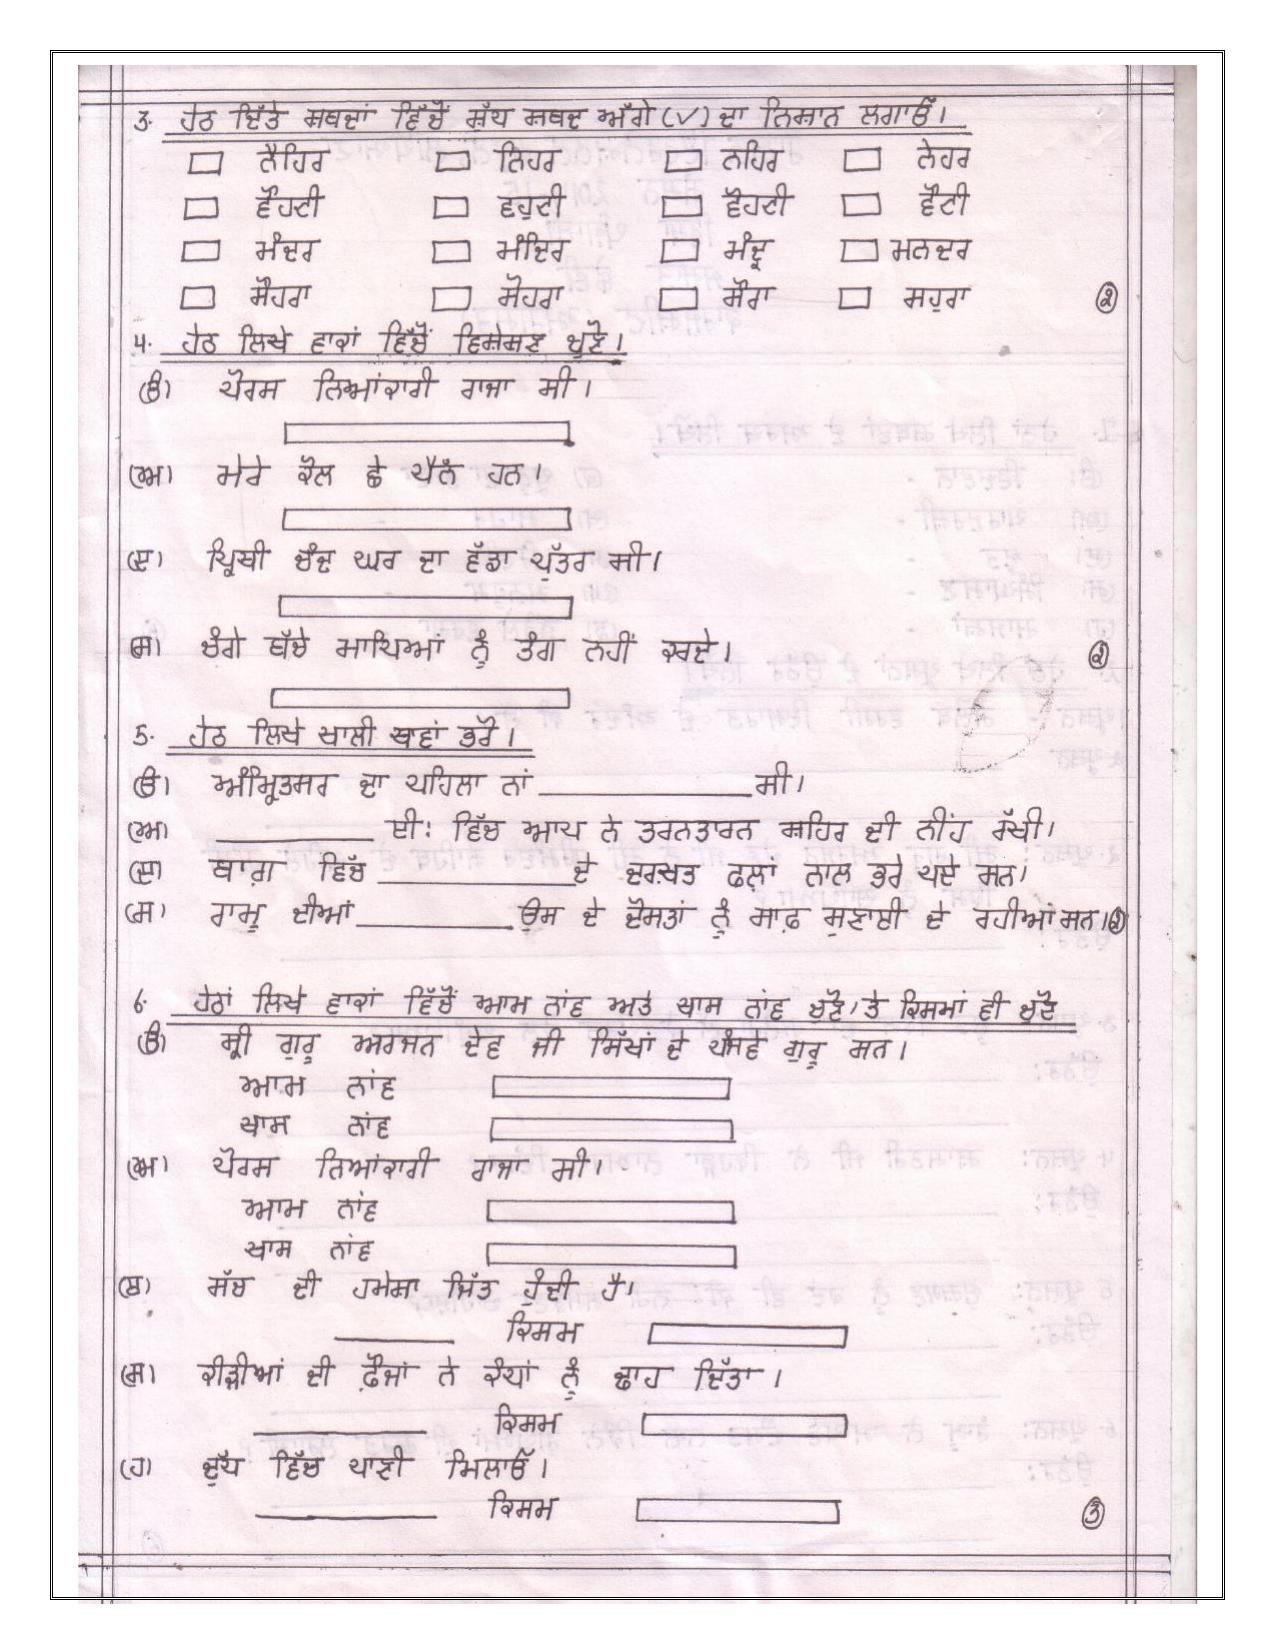 3. ਹੇਠ ਦਿੱਤੇ ਸ਼ਬਦਾਂ ਵਿੱਚੋਂ ਸ਼ੁੱਧ ਸ਼ਬਦ ਅੱਗੇ (✓) ਦਾ ਨਿਸ਼ਾਨ ਲਗਾਓ।
ਨੈਹਿਰ ਨਿਹਰ ਨਹਿਰ ਨੇਹਰ
ਵੌਹਟੀ ਵਹੁਟੀ ਵੋਹਟੀ ਵੌਟੀ
ਮੰਦਰ ਮੰਦਿਰ ਮੰਦ੍ਰ ਮਨਦਰ
ਸੌਹਰਾ ਸੋਹਰਾ ਸੌਰਾ ਸਹੁਰਾ (2)
4. ਹੇਠ ਲਿਖੇ ਵਾਕਾਂ ਵਿੱਚੋਂ ਵਿਸ਼ੇਸ਼ਣ ਚੁਣੋ।
(ੳ) ਪੋਰਸ ਨਿਆਂਕਾਰੀ ਰਾਜਾ ਸੀ।
(ਅ) ਮੇਰੇ ਕੋਲ ਛੇ ਪੈਨ ਹਨ।
(ੲ) ਪ੍ਰਿਥੀ ਚੰਦ ਘਰ ਦਾ ਵੱਡਾ ਪੁੱਤਰ ਸੀ।
(ਸ) ਚੰਗੇ ਬੱਚੇ ਸਾਥਿਆਂ ਨੂੰ ਤੰਗ ਨਹੀਂ ਕਰਦੇ। (2)
5. ਹੇਠ ਲਿਖੇ ਖਾਲੀ ਥਾਵਾਂ ਭਰੋ।
(ੳ) ਅੰਮ੍ਰਿਤਸਰ ਦਾ ਪਹਿਲਾ ਨਾਂ ____________ ਸੀ।
(ਅ) ____________ ਈ: ਵਿੱਚ ਆਪ ਨੇ ਤਰਨਤਾਰਨ ਸ਼ਹਿਰ ਦੀ ਨੀਂਹ ਰੱਖੀ।
(ੲ) ਬਾਗ਼ ਵਿੱਚ ____________ ਦੇ ਦਰਖ਼ਤ ਫਲਾਂ ਨਾਲ ਭਰੇ ਪਏ ਸਨ।
(ਸ) ਰਾਮੂ ਦੀਆਂ ____________ ਉਸ ਦੇ ਦੋਸਤਾਂ ਨੂੰ ਸਾਫ਼ ਸੁਣਾਈ ਦੇ ਰਹੀਆਂ ਸਨ। (2)
6. ਹੇਠਾਂ ਲਿਖੇ ਵਾਕਾਂ ਵਿੱਚੋਂ ਆਮ ਨਾਂਵ ਅਤੇ ਖਾਸ ਨਾਂਵ ਚੁਣੋ, ਤੇ ਕਿਸਮਾਂ ਵੀ ਚੁਣੋ
(ੳ) ਸ੍ਰੀ ਗੁਰੂ ਅਰਜਨ ਦੇਵ ਜੀ ਸਿੱਖਾਂ ਦੇ ਪੰਜਵੇਂ ਗੁਰੂ ਸਨ।
ਆਮ ਨਾਂਵ
ਖਾਸ ਨਾਂਵ
(ਅ) ਪੋਰਸ ਨਿਆਂਕਾਰੀ ਰਾਜਾ ਸੀ।
ਆਮ ਨਾਂਵ
ਖਾਸ ਨਾਂਵ
(ੲ) ਸੱਚ ਦੀ ਹਮੇਸ਼ਾ ਜਿੱਤ ਹੁੰਦੀ ਹੈ।
________ ਕਿਸਮ
(ਸ) ਕੀੜੀਆਂ ਦੀ ਫ਼ੌਜਾਂ ਨੇ ਕੰਧਾਂ ਨੂੰ ਢਾਹ ਦਿੱਤਾ।
________ ਕਿਸਮ
(ਹ) ਦੁੱਧ ਵਿੱਚ ਪਾਣੀ ਮਿਲਾਓ।
________ ਕਿਸਮ (3)